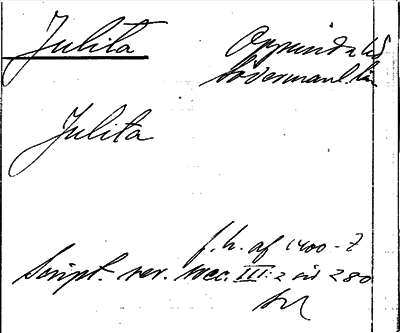 Julita
Oppunda hd
Södermanl. län
Julita
f.h. af 1400-t
Script. rer. svec. III:2 sid 280